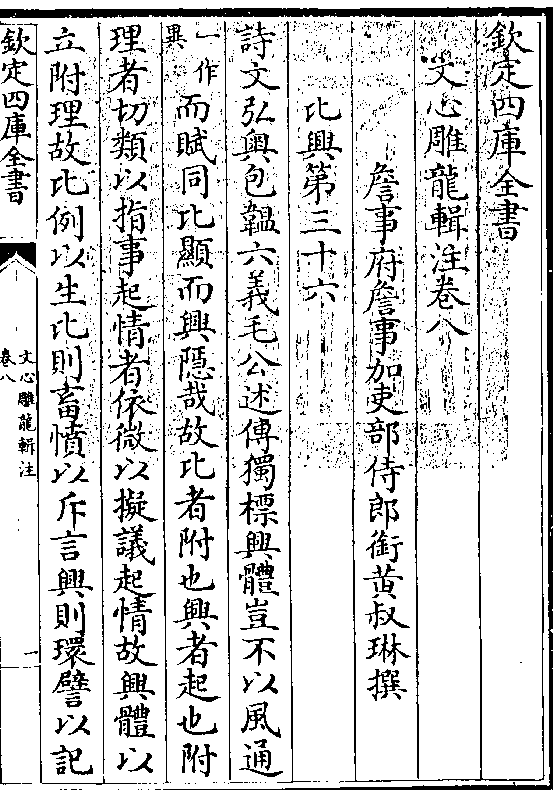 欽定四庫全書
文心雕龍輯注卷八
詹事府詹事加吏部侍郎銜黄叔琳撰
比興第三十六
詩文弘奥包韞六義毛公述傳獨標興體豈不以風通
一作
異
而賦同比顯而興隱哉故比者附也興者起也附
理者切類以指事起情者依微以擬議起情故興體以
立附理故比例以生比則畜憤以斥言興則環譬以記
欽定四庫全書
文心雕龍輯注
卷八
一